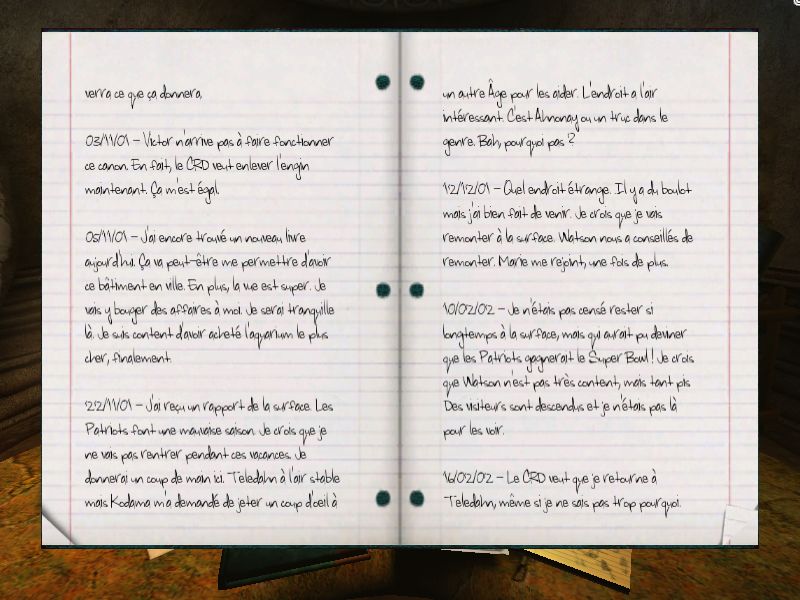 verra ce que ça donnera.
03/11/01 – Victor n'arrive pas à faire fonctionner
ce canon. En fait, le CRD veut enlever l'engin
maintenant. Ça m'est égal.
05/11/01 – J'ai encore trouvé un nouveau livre
aujourd'hui. Ça va peut-être me permettre d'avoir
ce bâtiment en ville. En plus, la vue est super. Je
vais y bouger des affaires à moi. Je serai tranquille
là. Je suis content d'avoir acheté l'aquarium le plus
cher, finalement.
22/11/01 – J'ai reçu un rapport de la surface. Les
Patriots font une mauvaise saison. Je crois que je
ne vais pas rentrer pendant ces vacances. Je
donnerai un coup de main ici. Teledahn à l'air stable
mais Kodama m'a demandé de jeter un coup d'oeil à
un autre Âge pour les aider. L'endroit a l'air
intéressant. C'est Ahnonay ou un truc dans le
genre. Bah, pourquoi pas ?
12/12/01 – Quel endroit étrange. Il y a du boulot
mais j'ai bien fait de venir. Je crois que je vais
remonter à la surface. Watson nous a conseillés de
remonter. Marie me rejoint, une fois de plus.
10/02/02 – Je n'étais pas censé rester si
longtemps à la surface, mais qui aurait pu deviner
que les Patriots gagnerait le Super Bowl ! Je crois
que Watson n'est pas très content, mais tant pis
Des visiteurs sont descendus et je n'étais pas là
pour les voir.
16/02/02 – Le CRD veut que je retourne à
Teledahn, même si je ne sais pas trop pourquoi.